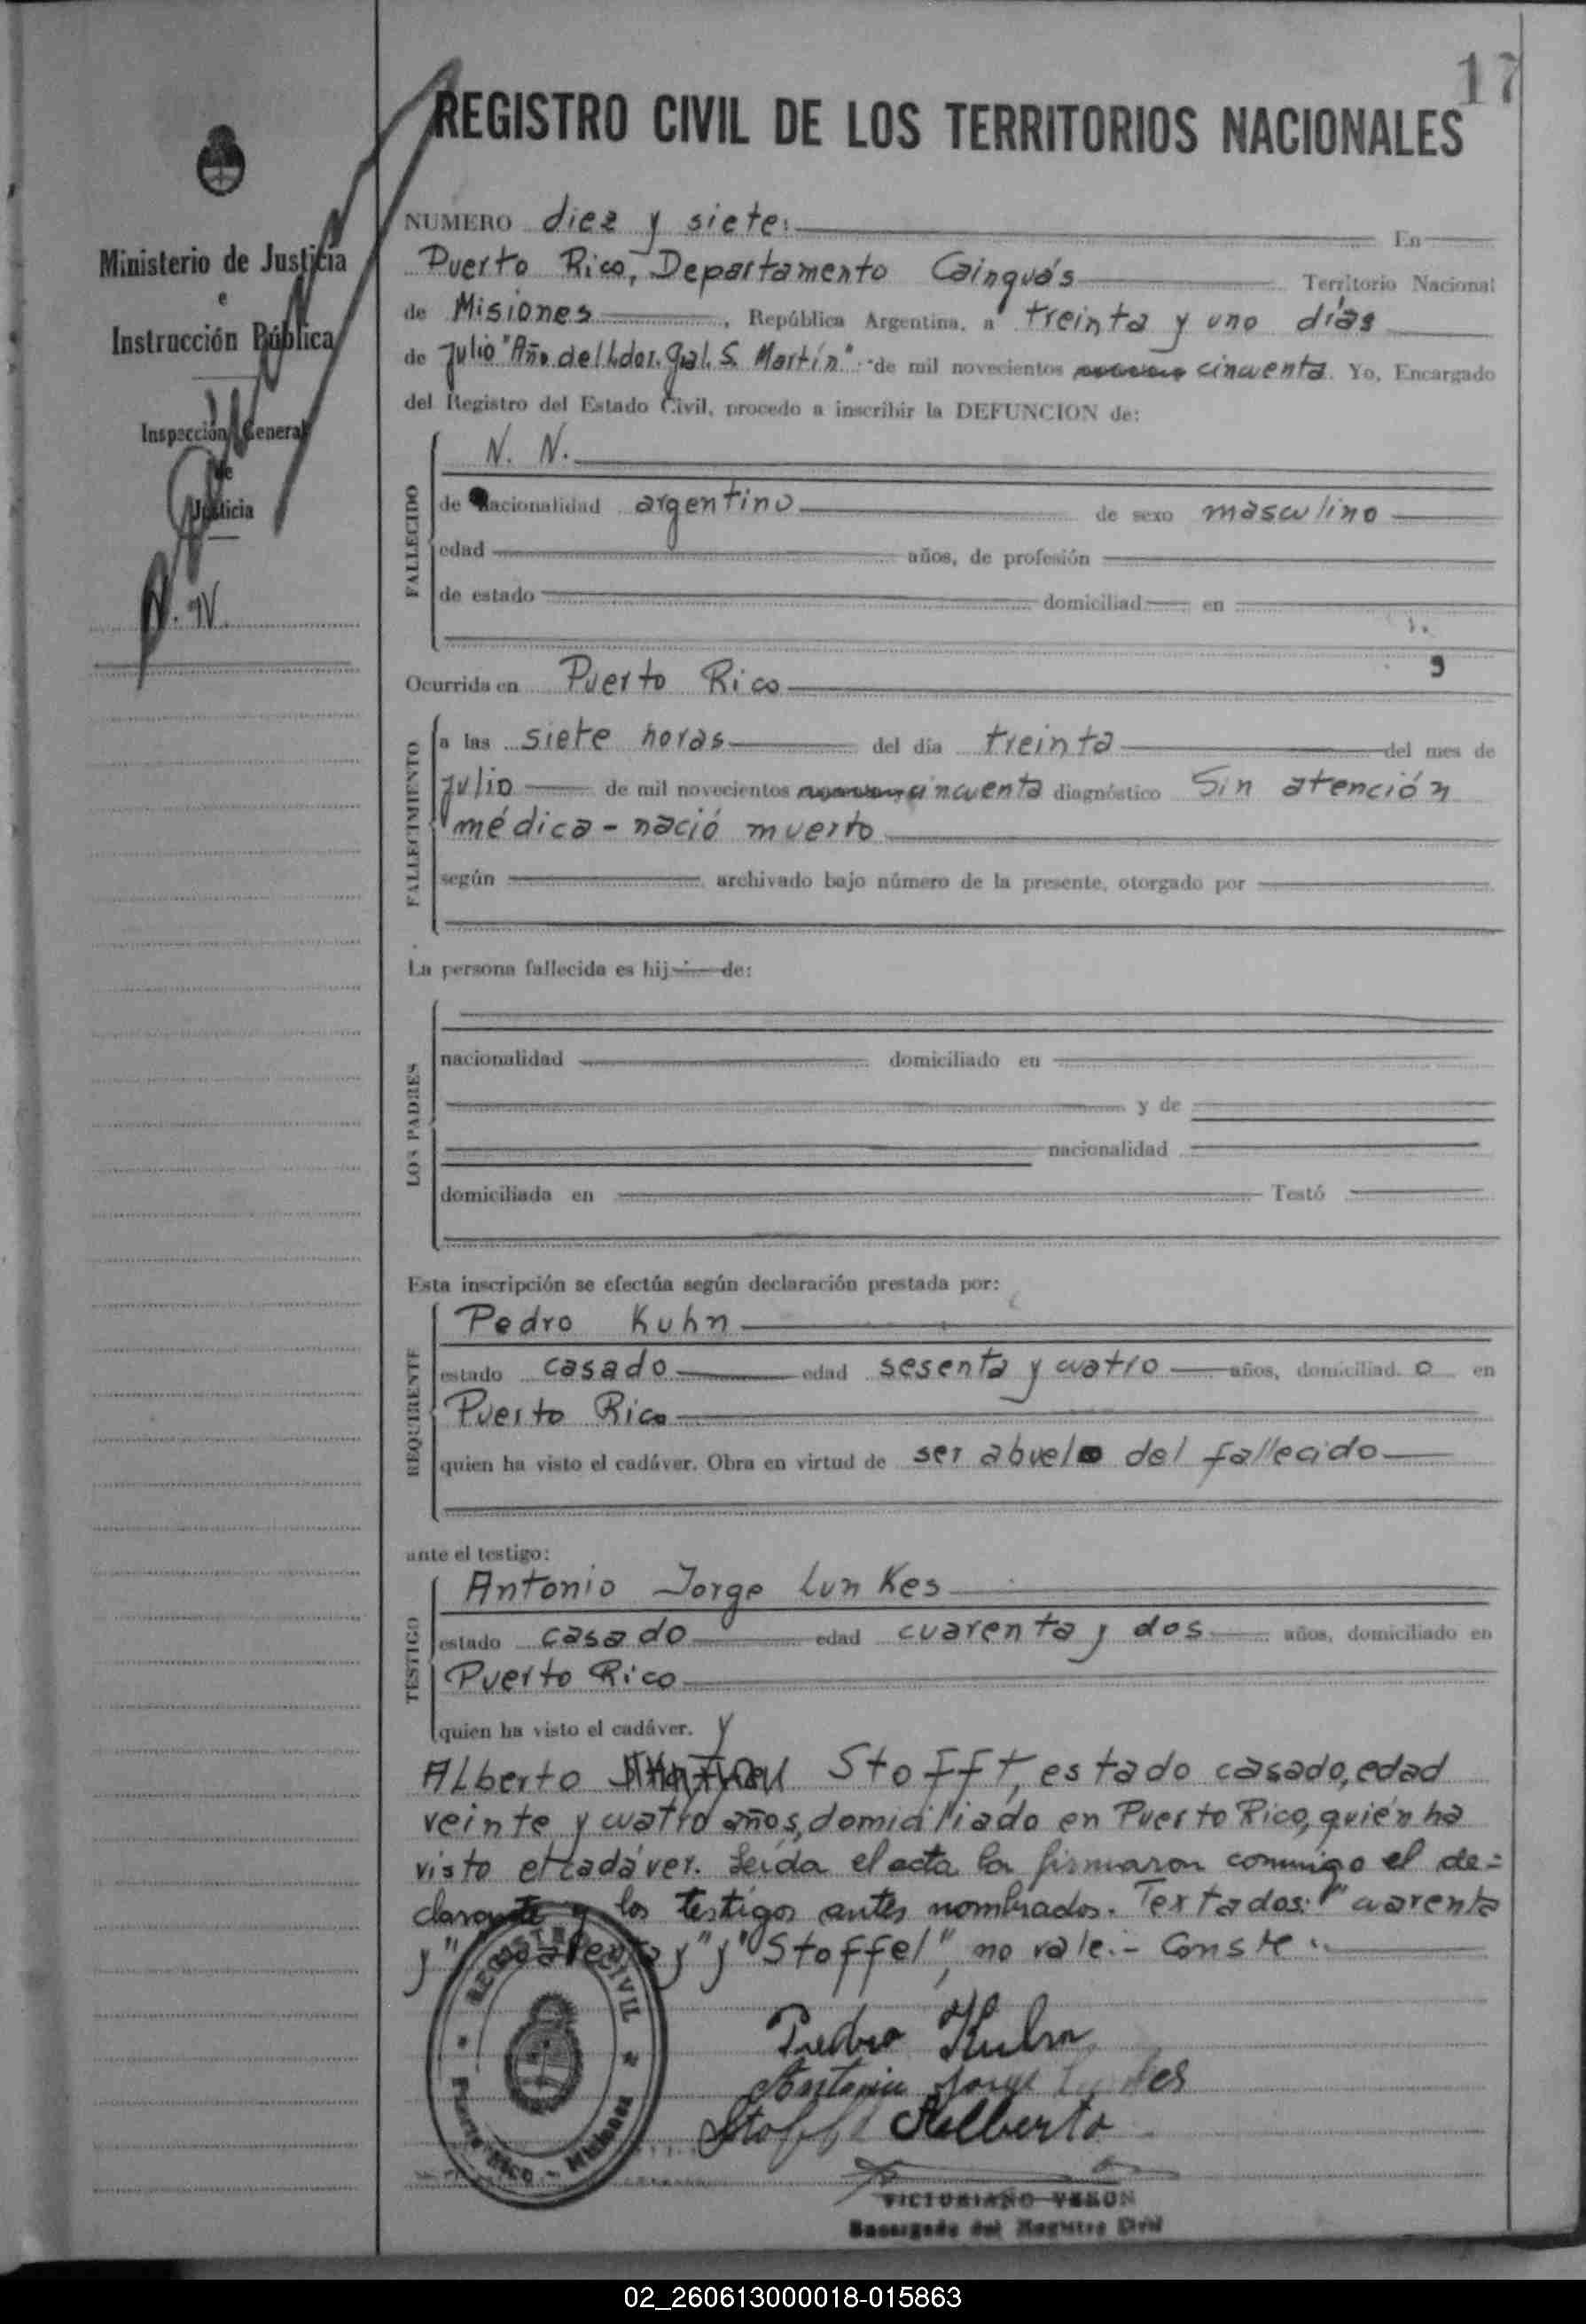 17
REGISTRO CIVIL DE LOS TERRITORIOS NACIONALES
Ministerio de Justicia
e
Instrucción Pública
Inspección General
de
Justicia
N. N.
NUMERO diez y siete. En
Puerto Rico, Departamento Cainguás Territorio Nacional
de Misiones, República Argentina, a treinta y uno días
de julio "Año del Ldor. Gral. S. Martín" de mil novecientos cincuenta. Yo, Encargado
del Registro del Estado Civil, procedo a inscribir la DEFUNCION de:
FALLECIDO
N. N.
de nacionalidad argentino de sexo masculino
edad años, de profesión
de estado domiciliad en
Ocurrida en Puerto Rico
FALLECIMIENTO
a las siete horas del día treinta del mes de
julio de mil novecientos cincuenta diagnóstico Sin atención
médica - nació muerto
según archivado bajo número de la presente, otorgado por
La persona fallecida es hij de:
LOS PADRES
nacionalidad domiciliado en
y de
nacionalidad
domiciliada en Testó
Esta inscripción se efectúa según declaración prestada por:
REQUIRENTE
Pedro Kuhn
estado casado edad sesenta y cuatro años, domiciliad o en
Puerto Rico
quien ha visto el cadáver. Obra en virtud de ser abuelo del fallecido
ante el testigo:
TESTIGO
Antonio Jorge Lunkes
estado casado edad cuarenta y dos años, domiciliado en
Puerto Rico
quien ha visto el cadáver. y
Alberto Stofft, estado casado, edad
veinte y cuatro años, domiciliado en Puerto Rico, quién ha
visto el cadáver. Leída el acta la firmaron conmigo el de=
clarante y los testigos antes nombrados. Textados: "cuarenta
y" "cuarenta y" y "Stoffel", no vale.- Conste.
Pedro Kuhn
Antonio Jorge Lunkes
Stoffel Alberto
REGISTRO CIVIL
Puerto Rico - Misiones
VICTORIANO VERON
Encargado del Registro Civil
02_260613000018-015863